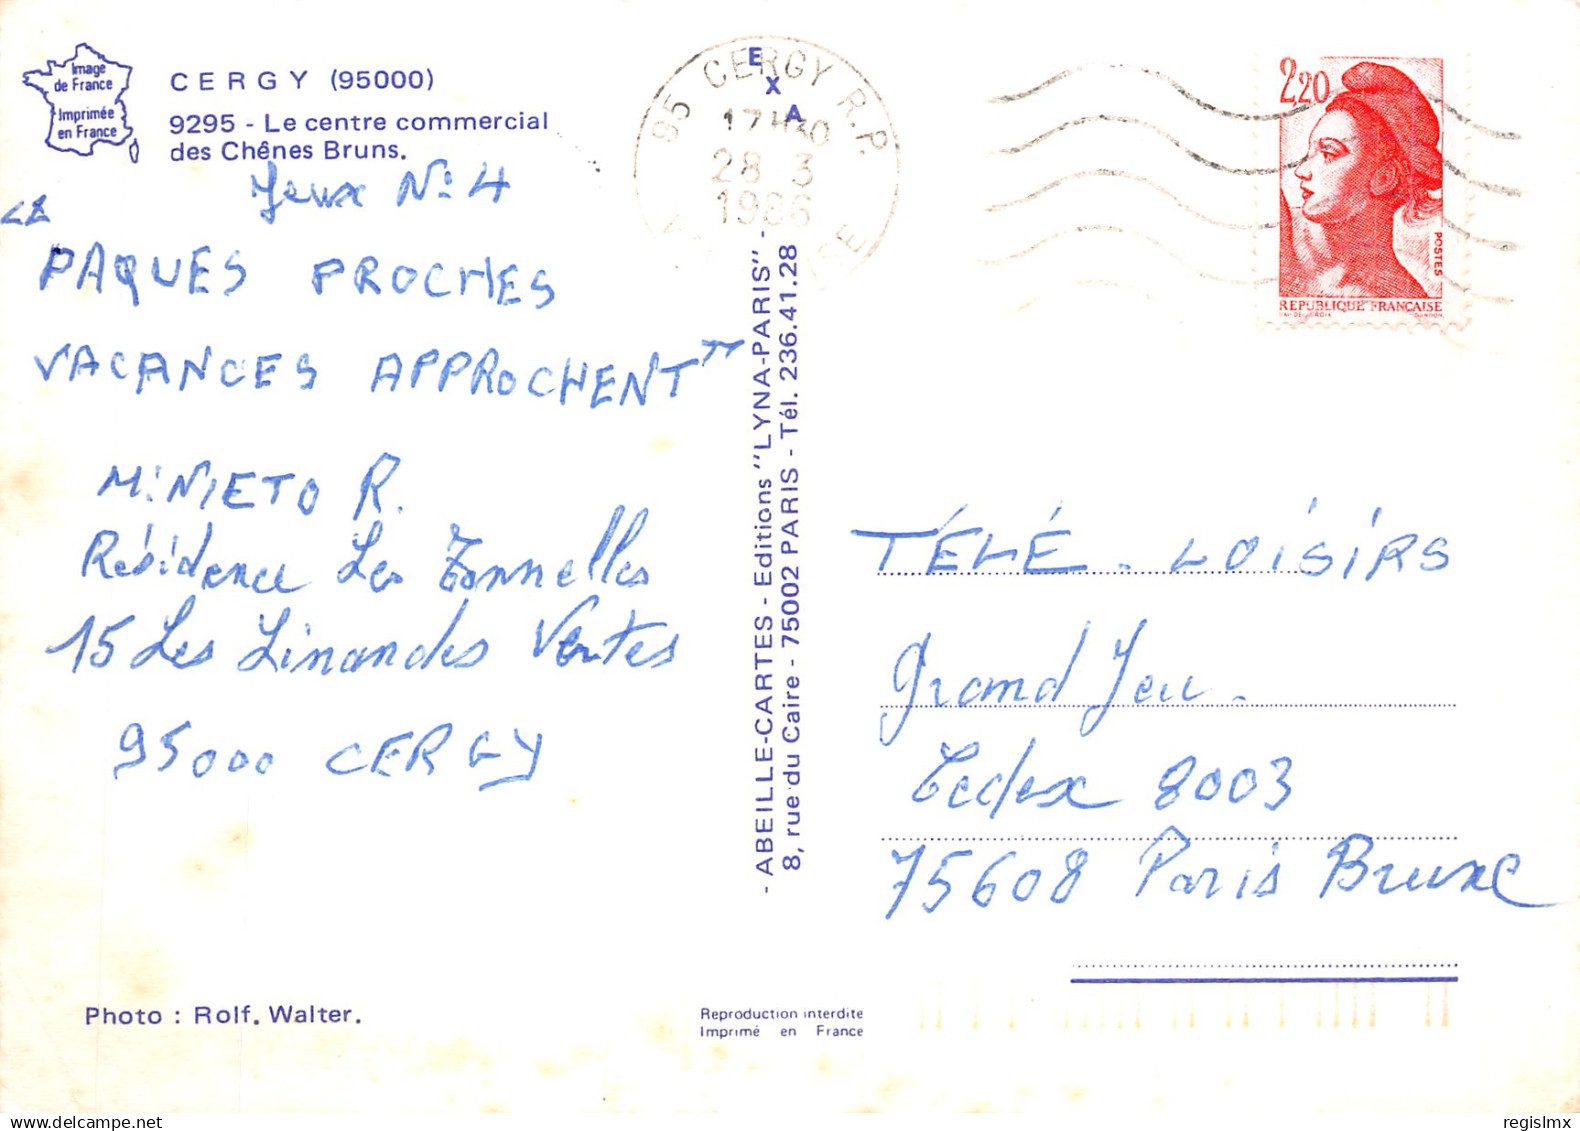 Image
de France
Imprimée
en France
CERGY (95000)
9295 - Le centre commercial
des Chênes Bruns.
Jeux N° 4
"
PAQUES PROCHES
VACANCES APPROCHENT"
M. NIETO R.
Résidence Les Tonnelles
15 Les Linandes Vertes
95000 CERGY
Photo : Rolf. Walter.
EXA
- ABEILLE-CARTES - Editions "LYNA-PARIS" -
8, rue du Caire - 75002 PARIS - Tél. 236.41.28
Reproduction interdite
Imprimé en France
95 CERGY R.P.
17H30
28 3
1986
2,20
POSTES
REPUBLIQUE FRANÇAISE
TÉLÉ-LOISIRS
Grand Jeu.
Cedex 8003
75608 Paris Brune
regislmx